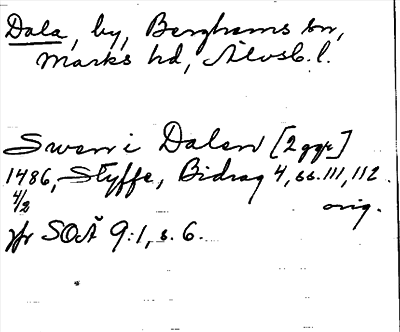 Dala, by, Berghems sn,
Marks hd, Älvsb. l.
Swen i Dalen [2 ggr]
1486, Styffe, Bidrag 4, ss. 111, 112.
4/2 orig.
jfr SOÄ 9:1, s. 6.